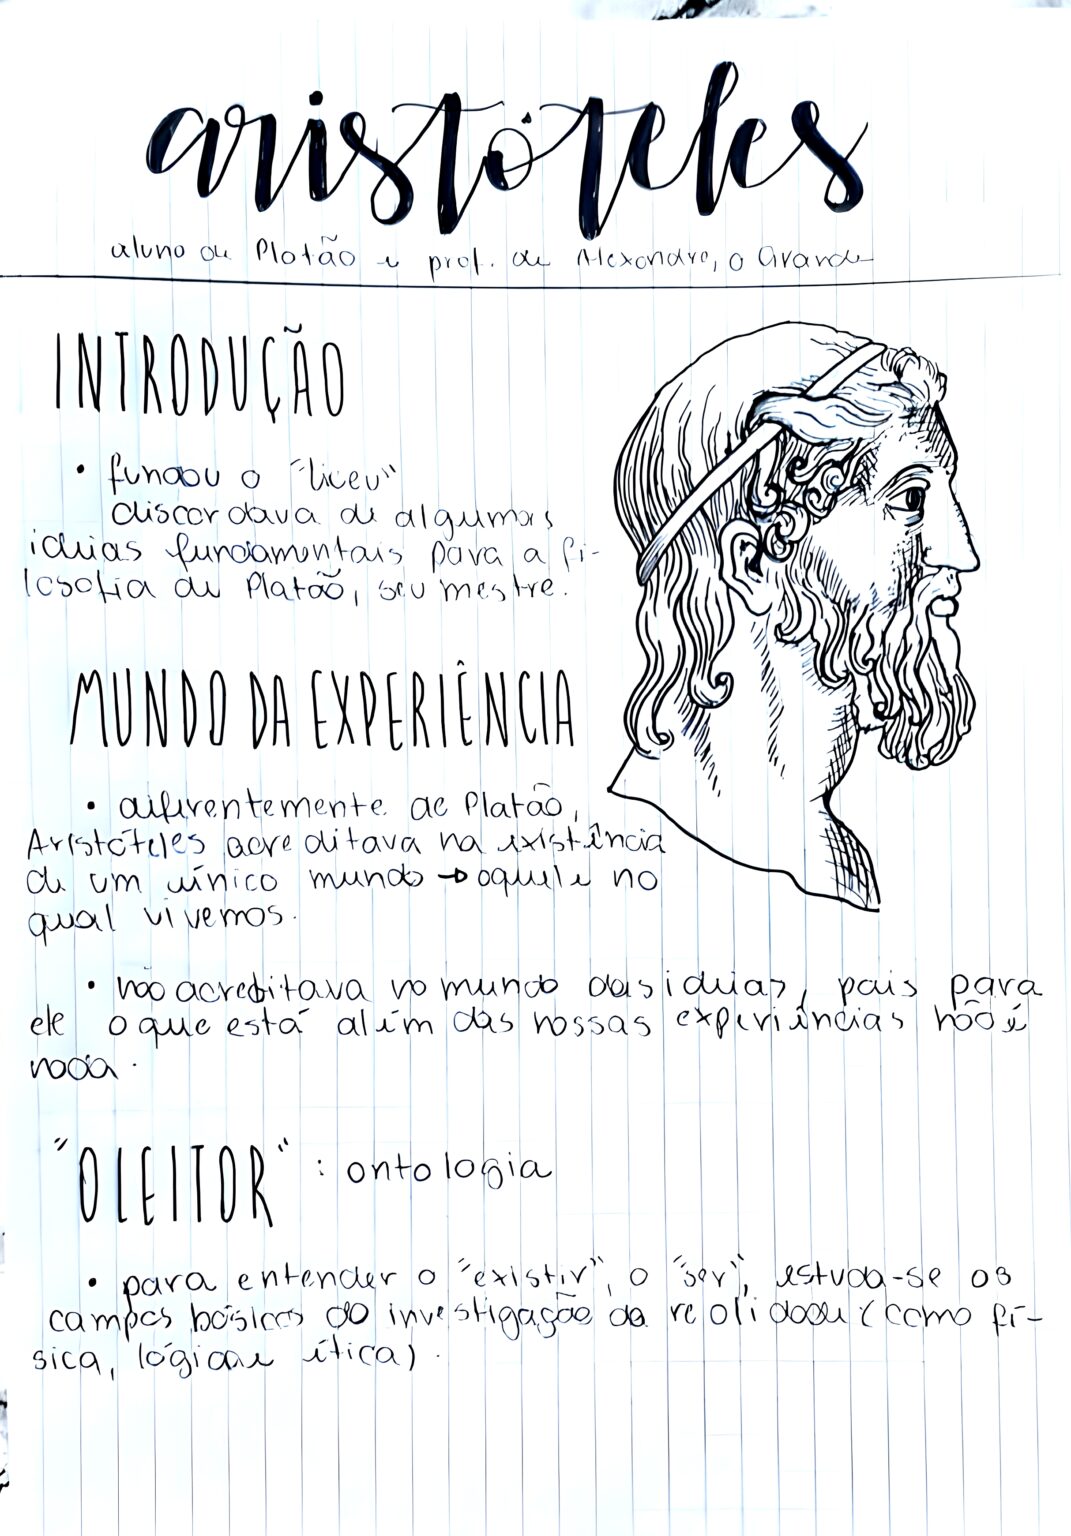 aristóteles
aluno de Platão e prof. de Alexandre, o Grande
INTRODUÇÃO
• fundou o "liceu"
discordava de algumas
ideias fundamentais para a fi-
losofia de Platão, seu mestre.
MUNDO DA EXPERIÊNCIA
• diferentemente de Platão,
Aristóteles acreditava na existência
de um único mundo → aquele no
qual vivemos.
• não acreditava no mundo das ideias, pois para
ele o que está além das nossas experiências não é
nada.
"O LEITOR" : ontologia
• para entender o "existir", o "ser", estuda-se os
campos básicos da investigação da realidade (como fí-
sica, lógica e ética).